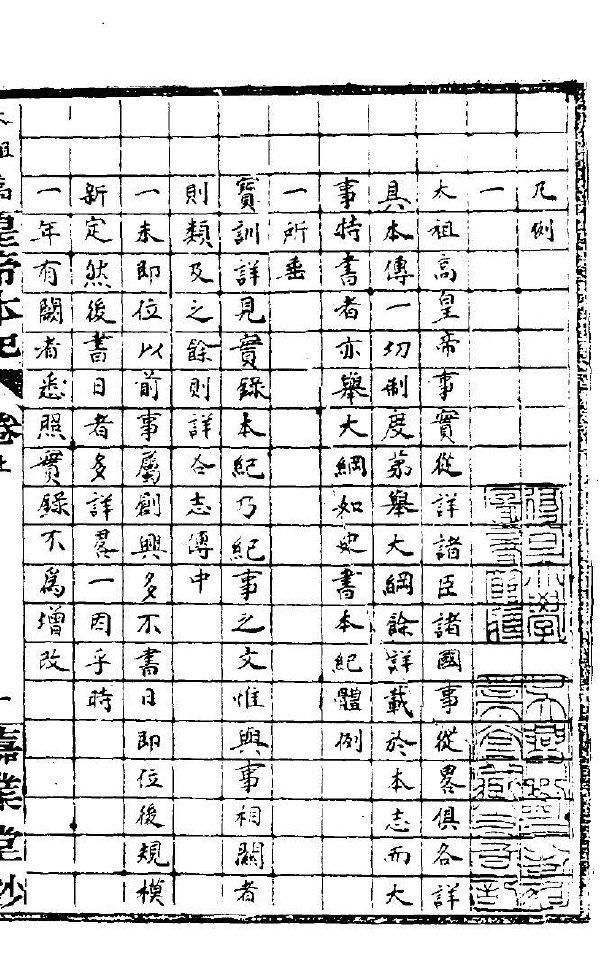 凡例
一
太祖高皇帝事實從詳諸臣諸國事從畧俱各詳
具本傳一切制度苐舉大綱餘詳載於本志而大
事特書者亦舉大綱如史書本紀體例
一所垂
寶訓詳見實錄本紀乃紀事之文惟與事相關者
則類及之餘則詳合志傳中
一未即位以前事屬創興多不書日即位後規模
新定然後書日者多詳畧一因乎時
一年有闕者悉照實錄不爲增改
太祖高皇帝本紀 卷上 一 嘉業堂鈔